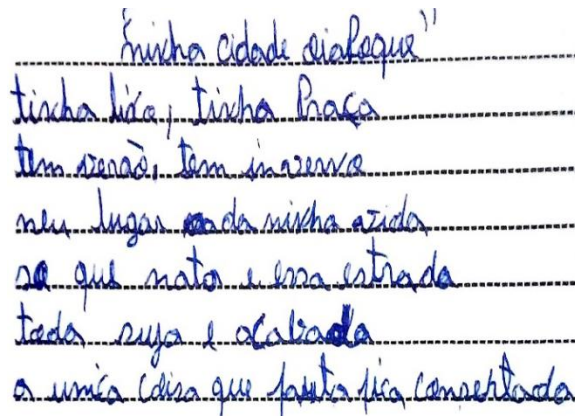 "minha cidade oiapoque"
tinha lixo, tinha Praça
tem verão, tem inverno
meu lugar da minha vida
so que nata e essa estrada
toda suja e acabada
a unica coisa que fauta fica consertada